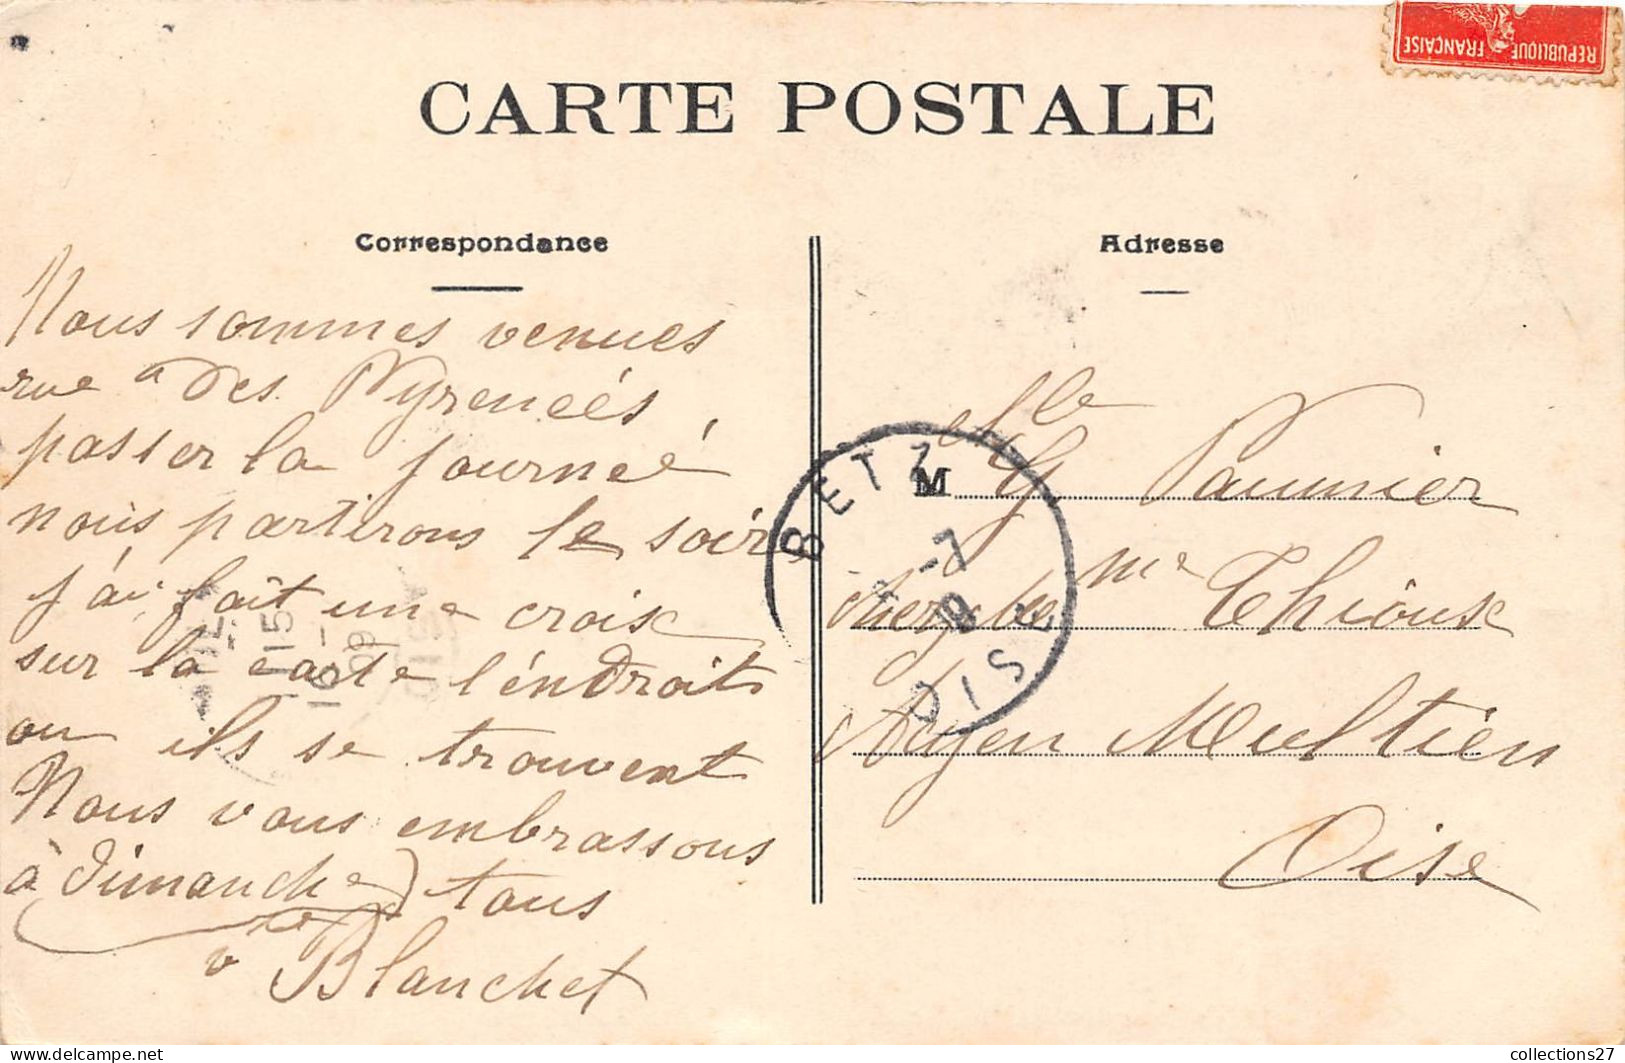 REPUBLIQUE FRANÇAISE
CARTE POSTALE
Correspondance
Nous sommes venues
rue des Pyreneés
passer la journeé
nous partirons le soir
j'ai fait une croix
sur la carte l'éndroit
ou ils se trouvent
Nous vous embrassons
à Dimanche tous
Blanchet
Adresse
M Mle G Paumier
me Thioux
Acy en Multien
Oise
BETZ
-7
OISE
15
16 -
09
OISE
collections27